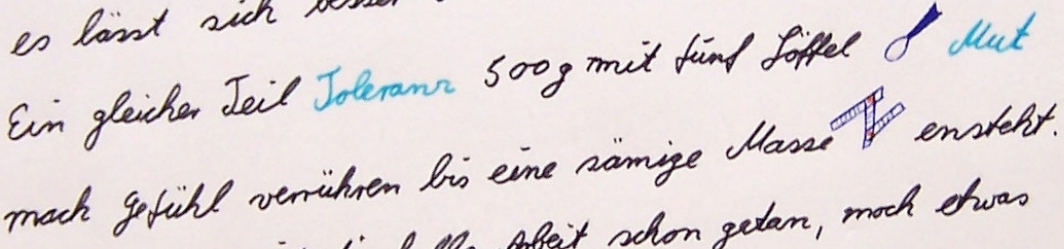 es lässt sich besser
Ein gleicher Teil Toleranz 500g mit fünf Löffel Mut
nach Gefühl verrühren bis eine sämige Masse ensteht.
Arbeit schon getan, noch etwas